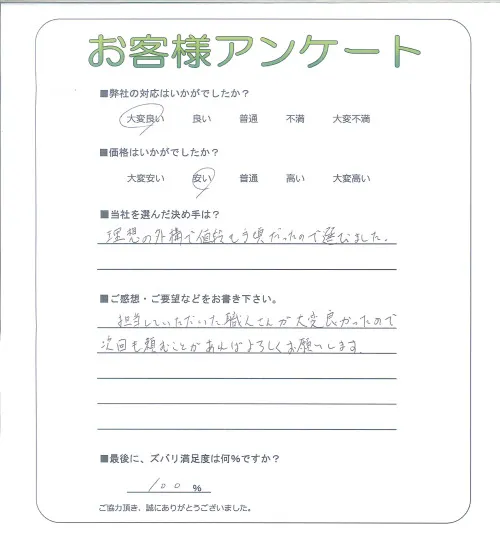 お客様アンケート
■弊社の対応はいかがでしたか？
大変良い 良い 普通 不満 大変不満
■価格はいかがでしたか？
大変安い 安い 普通 高い 大変高い
■当社を選んだ決め手は？
理想の外構で値段も手頃だったので選びました。
■ご感想・ご要望などをお書き下さい。
担当していただいた職人さんが大変良かったので
次回も頼むことがあればよろしくお願いします。
■最後に、ズバリ満足度は何％ですか？
100 ％
ご協力頂き、誠にありがとうございました。